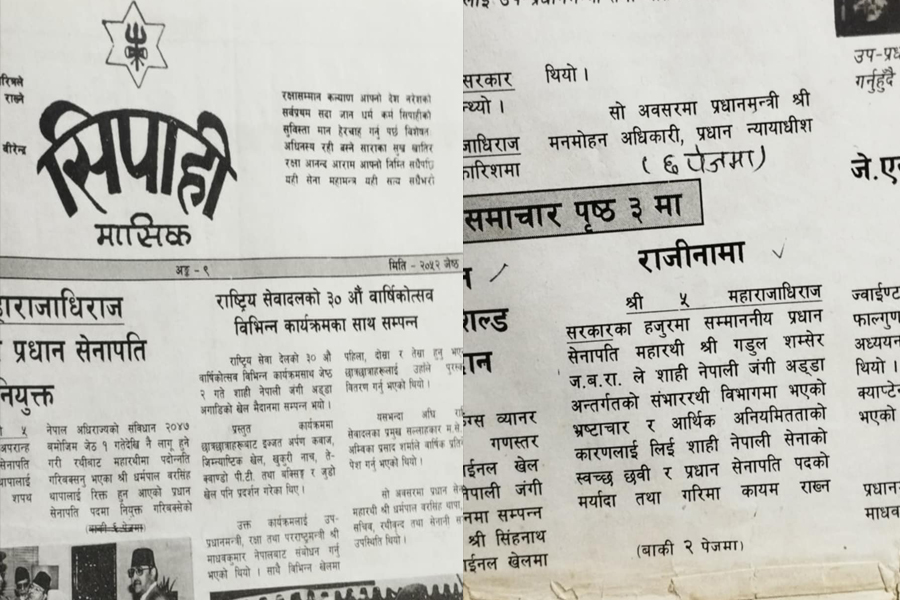 रिपले
राख्ने
बीरेन्द्र
सिपाही
मासिक
रक्षासम्मान कल्याण आफ्नो देश नरेशको
सर्वप्रथम सदा ज्ञान धर्म कर्म सिपाहीको
सुविस्ता मान हेरचाह गर्नु पर्छ विशेषत
अधिनस्थ रही बस्ने साराका सुख खातिर
रक्षा आनन्द आराम आफ्नो निम्ति सधैंपछि
यही सेना महामन्त्र यही सत्य सधैंभरी
अङ्क - ९
मिति - २०५२ जेष्ठ
हाराजाधिराज
प्रधान सेनापति
नियुक्त
नेपाल अधिराज्यको संविधान २०४७
बमोजिम जेठ १ गतेदेखि नै लागू हुने
गरी रथीबाट महारथीमा पदोन्नति
गरिबक्सनु भएका श्री धर्मपाल बरसिंह
थापालाई रिक्त हुन आएको प्रधान
सेनापति पदमा नियुक्त गरिबक्सेको
(बाकी ६ पेजमा)
५
अपरान्ह
सेनापति
थापालाई
शपथ
राष्ट्रिय सेवादलको ३० औं वार्षिकोत्सव
विभिन्न कार्यक्रमका साथ सम्पन्न
राष्ट्रिय सेवा देलको ३० औ
वार्षिकोत्सव विभिन्न कार्यक्रमसाथ जेष्ठ
२ गते शाही नेपाली जंगी अड्डा
अगाडिको खेल मैदानमा सम्पन्न भयो ।
प्रस्तुत कार्यक्रममा
छात्रछात्राहरूबाट इज्जत अर्पण कबाज,
जिम्न्याष्टिक खेल, खुकुरी नाच, ते-
क्वाण्डो पी.टी. तथा बक्सिङ्ग र जुडो
खेल पनि प्रदर्शन गरेका थिए ।
उक्त कार्यक्रमलाई उप-
प्रधानमन्त्री, रक्षा तथा परराष्ट्रमन्त्री श्री
माधवकुमार नेपालबाट संबोधन गर्नु
भएको थियो । साथै विभिन्न खेलमा
पहिला, दोस्रा र तेस्रा हुनु भए
छात्रछात्राहरूलाई उहाँले पुरस्क
वितरण गर्नु भएको थियो ।
यसभन्दा अघि रा
सेवादलका प्रमुख सल्लाहकार म.से.
अम्बिका प्रसाद शर्माले वार्षिक प्रति
पेश गर्नु भएको थियो ।
सो अवसरमा प्रधान से
महारथी श्री धर्मपाल बरसिंह थापा,
सचिव, रथीवृन्द तथा सेनानी स
उपस्थिति थियो ।
सरकार
थ्यो ।
जाधिराज
कारिशमा
थियो ।
सो अवसरमा प्रधानमन्त्री श्री
मनमोहन अधिकारी, प्रधान न्यायाधीश
(६ पेजमा)
उप-प्र
गर्नुहुँदै
जे.ए
समाचार पृष्ठ ३ मा
राजीनामा
श्री ५ महाराजाधिराज
सरकारका हजुरमा सम्माननीय प्रधान
सेनापति महारथी श्री गडुल शम्सेर
ज.ब.रा. ले शाही नेपाली जंगी अड्डा
अन्तर्गतको संभाररथी विभागमा भएको
भ्रष्टाचार र आर्थिक अनियमितताको
कारणलाई लिई शाही नेपाली सेनाको
स्वच्छ छवी र प्रधान सेनापति पदको
मर्यादा तथा गरिमा कायम राख्न
(बाकी २ पेजमा)
शल्ड
ान
ग्स व्यानर
गणस्तर
ाईनल खेल
नेपाली जंगी
नमा सम्पन्न
श्री सिंहनाथ
ाईनल खेलमा
ज्वाईण्ट
फाल्गुण
अध्ययन
थियो ।
क्याप्टेन
भएको
प्रधान
माधव